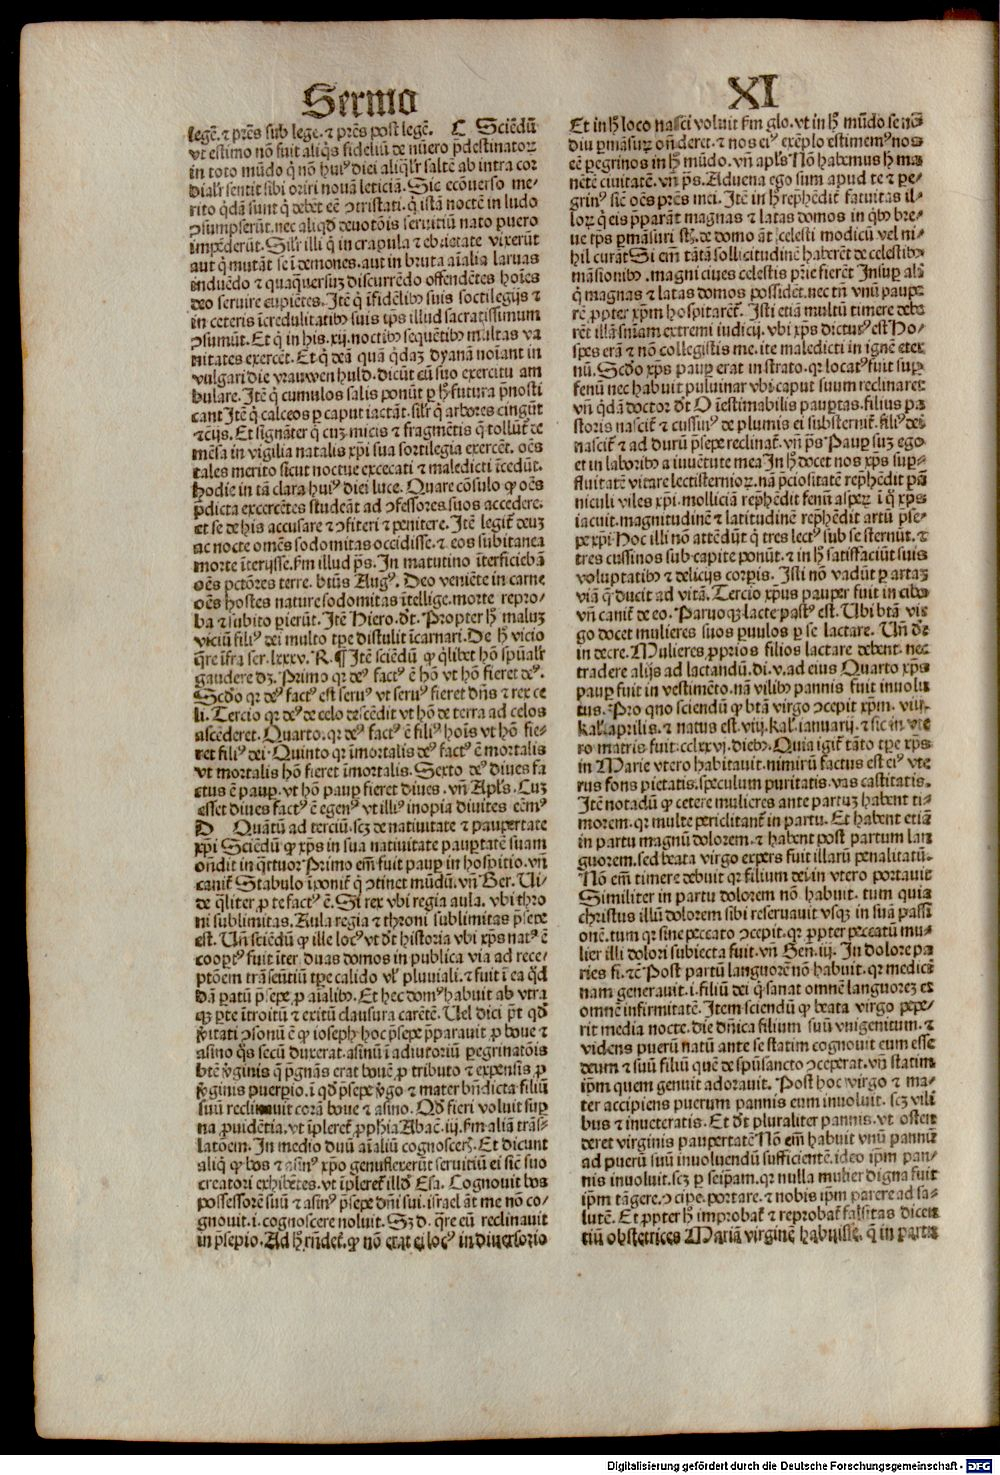 Sermo
XI
legē. ⁊ p̄res sub lege. ⁊ p̄res post legē. C Sciēdū
vt estimo nō fuit aliq̄s fideliū de nūero p̄destinatoꝝ
in toto mūdo q̄ nō huiꝰ diei aliq̄lr̄ saltē ab intra cor
dialr̄ sentit sibi oriri nouā leticiā. Sic ecōuerso me⸗
rito q̄dā sunt q̄ debēt eē ꝯtristati. q̄ istā noctē in ludo
ꝯsumpserūt. nec aliqd̄ deuotōis seruitiū nato puero
impēderūt. Silr̄ illi q̄ in crapula ⁊ ebrietate vixerūt
aut q̄ mutāt se ī demones. aut in bruta aīalia laruas
induēdo ⁊ quaq̄uersuꝫ discurrēdo offendētes hoīes
deo seruire cupiētes. Itē q̄ īfidelibꝰ suis soctilegijs ⁊
in ceteris īcredulitatibꝰ suis tp̄s illud sacratissimum
ꝯsumūt. Et q̄ in his. xij. noctibꝰ sequētibꝰ multas va
nitates exercēt. Et q̄ deā quā q̄daꝫ dyanā noīant in
vulgari die vrauwen huld. dicūt eū suo exercitu am
bulare. Itē q̄ cumulos salis ponūt ⁊ ꝑ h̄ futura p̄nosti
cant Itē q̄ calceos ꝑ caput iactāt. silr̄ q̄ arbores cingūt
⁊cꝭijs. Et signāter q̄ cuꝫ micis ⁊ fragmētis q̄ tollūt᷑ de
mēsa in vigilia natalis xp̄i sua sortilegia exercēt. oēs
tales merito sicut noctue excecati ⁊ maledicti īcedūt.
hodie in tā clara huiꝰ diei luce. Quare cōsulo ꝙ oēs
p̄dicta excercētes studeāt ad ꝯfessores suos accedere.
et se de his accusare ⁊ ꝯfiteri ⁊ penitere. Itē legit᷑ deuꝫ
ac nocte omēs sodomitas occidisse. ⁊ eos subitanea
morte īterijsse. fm illud ps̄. In matutino īterficiebā
oēs pctōres terre. btūs Augꝰ. Deo veniēte in carne
oēs hostes nature sodomitas ītellige. morte repro⸗
ba ⁊ subito ꝑierūt. Itē Hiero. dt̄. Propter h̄ maluꝫ
viciū filiꝰ dei multo tp̄e distulit īcarnari. De h̄ vicio
q̄re īfra ser. lxxxv. R. ¶ Itē sciēdū ꝙ q̄libet hō spūalr̄
gaudere dꝫ. Primo qꝛ deꝰ factꝰ ē hō vt hō fieret deꝰ.
Scdo qꝛ deꝰ factꝰ est seruꝰ vt seruꝰ fieret dn̄s ⁊ rex ce
li. Tercio qꝛ deꝰ de celo descēdit vt hō de terra ad celos
ascēderet. Quarto. qꝛ deꝰ factꝰ ē filiꝰ hoīs vt hō fie⸗
ret filiꝰ dei. Quinto qꝛ īmortalis deꝰ factꝰ ē mortalis
vt mortalis hō fieret īmortalis. Sexto deꝰ diues fa
ctus ē pauꝑ. vt hō pauꝑ fieret diues. vn̄ Apl̄s. Cuꝫ
esset diues factꝰ ē egenꝰ vt illiꝰ inopia diuites eēmꝰ
D Quātū ad terciū. scꝫ de natiuitate ⁊ paupertate
xp̄i Sciēdū ꝙ xp̄s in sua natiuitate pauꝑtatē suam
on̄dit in q̄ttuor Primo em̄ fuit pauꝑ in hospitio. vn̄
canit᷑ Stabulo īponit᷑ q̄ ꝯtinet mūdū. vn̄ Ber. Ui⸗
de q̄liter ꝓ te factꝰ ē. Si rex vbi regia aula. vbi thro
ni sublimitas. Aula regia ⁊ throni sublimitas p̄sepe
est. Un̄ sciēdū ꝙ ille locꝰ vt dt̄ historia vbi xp̄s natꝰ ē
cooptꝰ fuit īter duas domos in publica via ad rece⸗
ptōem trāseūtiū tp̄e calido vl̓ pluuiali. ⁊ fuit ī ea q̄d
dā ꝑatū p̄sepe ꝓ aīalibꝰ. Et hec domꝰ habuit ab vtra
qꝫ ꝑte ītroitū ⁊ exitū clausura carētē. Uel dici pt̄ qd̄
v̄itati ꝯsonū ē ꝙ ioseph hoc p̄sepe p̄parauit ꝓ boue ⁊
asino q̄s secū duxerat. asinū ī adiutoriū ꝑegrinatōis
btē v̄ginis q̄ p̄gnās erat bouē ꝓ tributo ⁊ expensis ꝓ
v̄ginis puerꝑio. ī qd̄ p̄sepe v̄go ⁊ mater bn̄dicta filiū
suū reclinauit corā boue ⁊ asino. Qd̄ fieri voluit suꝑ
na ꝓuidētia. vt īpleret᷑ ꝓphīa Abac̄. iij. fm aliā trās⸗
latōem. In medio duū aīaliū cognosceꝝ. Et dicunt
aliq̄ ꝙ bos ⁊ asinꝰ xp̄o genuflexerūt seruitiū ei sicē suo
creatori exhibētes. vt īpleret᷑ illd̄ Esa. Cognouit bos
possessorē suū ⁊ asinꝰ p̄sepe dn̄i sui. israel āt me nō co⸗
gnouit. i. cognoscere noluit. Sꝫ d. q̄re eū reclinauit
in p̄sepio. Ad h̄ rn̄det᷑. ꝙ nō erat ei locꝰ in diuersorio
Et in h̄ loco nasci voluit fm glo. vt in h̄ mūdo se nō
diu ꝑmāsuꝝ on̄deret. ⁊ nos eiꝰ exēplo estimemꝰ nos
eē ꝑegrinos in h̄ mūdo. vn̄ apl̄s Nō habemus h̄ ma
nētē ciuitatē. vn̄ ps̄. Aduena ego sum apud te ⁊ ꝑe⸗
grinꝰ sicē oēs p̄res mei. Itē in h̄ rep̄hēdit᷑ fatuitas il⸗
loꝝ q̄ eis p̄parāt magnas ⁊ latas domos in qꝰbꝰ bre⸗
ue tp̄s ꝑmāsuri st̄. ꝫ de domo āt celesti modicū vel ni⸗
hil curāt Si em̄ tātā sollicitudinē haberēt de celestibꝰ
māsionibꝰ. magni ciues celestis pr̄ie fierēt Insuꝑ alꝰ
q̄ magnas ⁊ latas domos possidēt. nec tn̄ vnū pauꝑe
rē ꝓpter xp̄m hospitarēt᷑. Isti etiā multū timere debe
rēt illā sn̄iam extremi iudicij. vbi xp̄s dicturꝰ est Ho⸗
spes erā ⁊ nō collegistis me. ite maledicti in ignē eter
nū. Scdo xp̄s pauꝑ erat in strato. qꝛ locatꝰ fuit suꝑ
fenū nec habuit puluinar vbi caput suum reclinaret
vn̄ q̄dā doctor dt̄ O īestimabilis pauꝑtas. filius pa
storis nascit᷑ ⁊ cussinꝰ de plumis ei substernit᷑. filiꝰ dei
nascit᷑ ⁊ ad durū p̄sepe reclinat᷑. vn̄ ps̄ Pauꝑ suꝫ ego
et in laboribꝰ a iuuētute mea In h̄ docet nos xp̄s suꝑ⸗
fluitatē vitare lectisternioꝝ. nā p̄ciositatē rep̄hēdit pā
niculi viles xp̄i. molliciā rep̄hēdit fenū asperꝝ ī q̄ xp̄s
iacuit. magnitudinē ⁊ latitudinē rep̄hēdit artū p̄se⸗
pe xp̄i Hoc illi nō attēdūt q̄ tres lectꝰ sub se sternūt. ⁊
tres cussinos sub capite ponūt. ⁊ in h̄ satisfaciūt suis
voluptatibꝰ ⁊ delicijs corꝑis. Isti nō vadūt ꝑ artaꝫ
viā q̄ ducit ad vitā. Tercio xp̄us pauper fuit in cibo
vn̄ canit᷑ de eo. Paruoqꝫ lacte pastꝰ est. Ubi btā vir
go docet mulieres suos ꝑuulos ꝑ se lactare. Un̄ dr̄
in decre. Mulieres ꝓprios filios lactare debent. nec
tradere alijs ad lactandū. di. v. ad eius Quarto xp̄s
pauꝑ fuit in vestimēto. nā vilibꝰ pannis fuit inuolu
tus. Pro quo sciendū ꝙ btā virgo ꝯcepit xp̄m. viij.
kal̓. aprilis. ⁊ natus est. viij. kal̓. ianuarij. ⁊ sic in vte
ro matris fuit. cclxxvj. diebꝰ. Quia igit᷑ tāto tp̄e xp̄s
in Marie vtero habitauit. nimirū factus est eiꝰ vte
rus fons pietatis. speculum puritatis. vas castitatis.
Itē notadū ꝙ cetere mulieres ante partuꝫ habent ti⸗
morem. qꝛ multe periclitant᷑ in partu. Et habent etiā
in partu magnū dolorem. ⁊ habent post partum lan
guorem. sed beata virgo expers fuit illarū penalitatū.
Nō em̄ timere debuit qꝛ filium dei in vtero portauit
Similiter in partu dolorem nō habuit. tum quia
christus illū dolorem sibi reseruauit vsqꝫ in suā passi
onē. tum qꝛ sine peccato ꝯcepit. qꝛ ꝓpter peccatū mu⸗
lier illi dolori subiecta fuit. vn̄ Gen. iij. In dolore pa
ries fi. ⁊c̄ Post partū languorē nō habuit. qꝛ medicū
nam generauit. i. filiū dei q̄ sanat omnē languoreꝫ et
omnē infirmitatē. Item sciendū ꝙ beata virgo pepe⸗
rit media nocte. die dn̄ica filium suū vnigenitum. ⁊
videns puerū natū ante se statim cognouit eum esse
deum ⁊ suū filiū quē de spūsancto ꝯceperat. vn̄ statim
ip̄m quem genuit adorauit. Post hoc virgo ⁊ ma⸗
ter accipiens puerum pannis eum inuoluit. scꝫ vili
bus ⁊ inueteratis. Et dt̄ pluraliter pannis. vt osten
deret virginis paupertatē Nō em̄ habuit vnū pannū
ad puerū suū inuoluendū sufficientē. ideo ip̄m pan⸗
nis inuoluit. scꝫ ꝑ seip̄am. qꝛ nulla mulier digna fuit
ip̄m tāgere. ꝯcipe. portare. ⁊ nobis ip̄m parere ad sa⸗
lutē. Et ꝓpter h̄ improbat᷑ ⁊ reprobat᷑ falsitas dicen
tiū obstetrices Mariā virginē habuisse. q̄ in partu
Digitalisierung gefördert durch die Deutsche Forschungsgemeinschaft - DFG